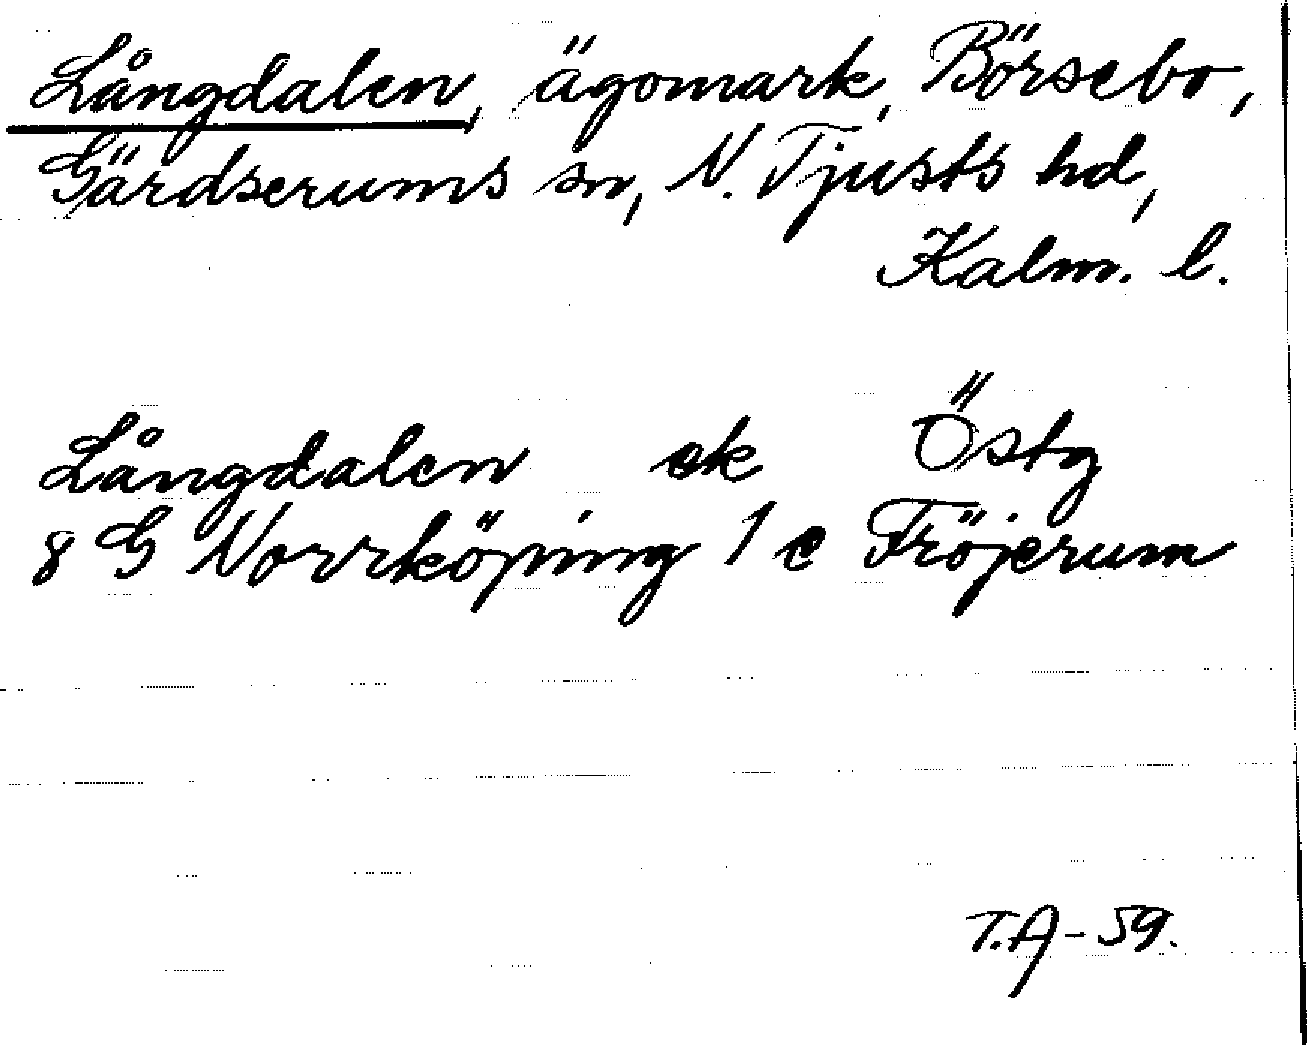 Långdalen, ägomark, Börsebo,
Gärdserums sn, N. Tjusts hd,
Kalm. l.
Långdalen ek Östg
8 G Norrköping 1 e Fröjerum
T.A-59.